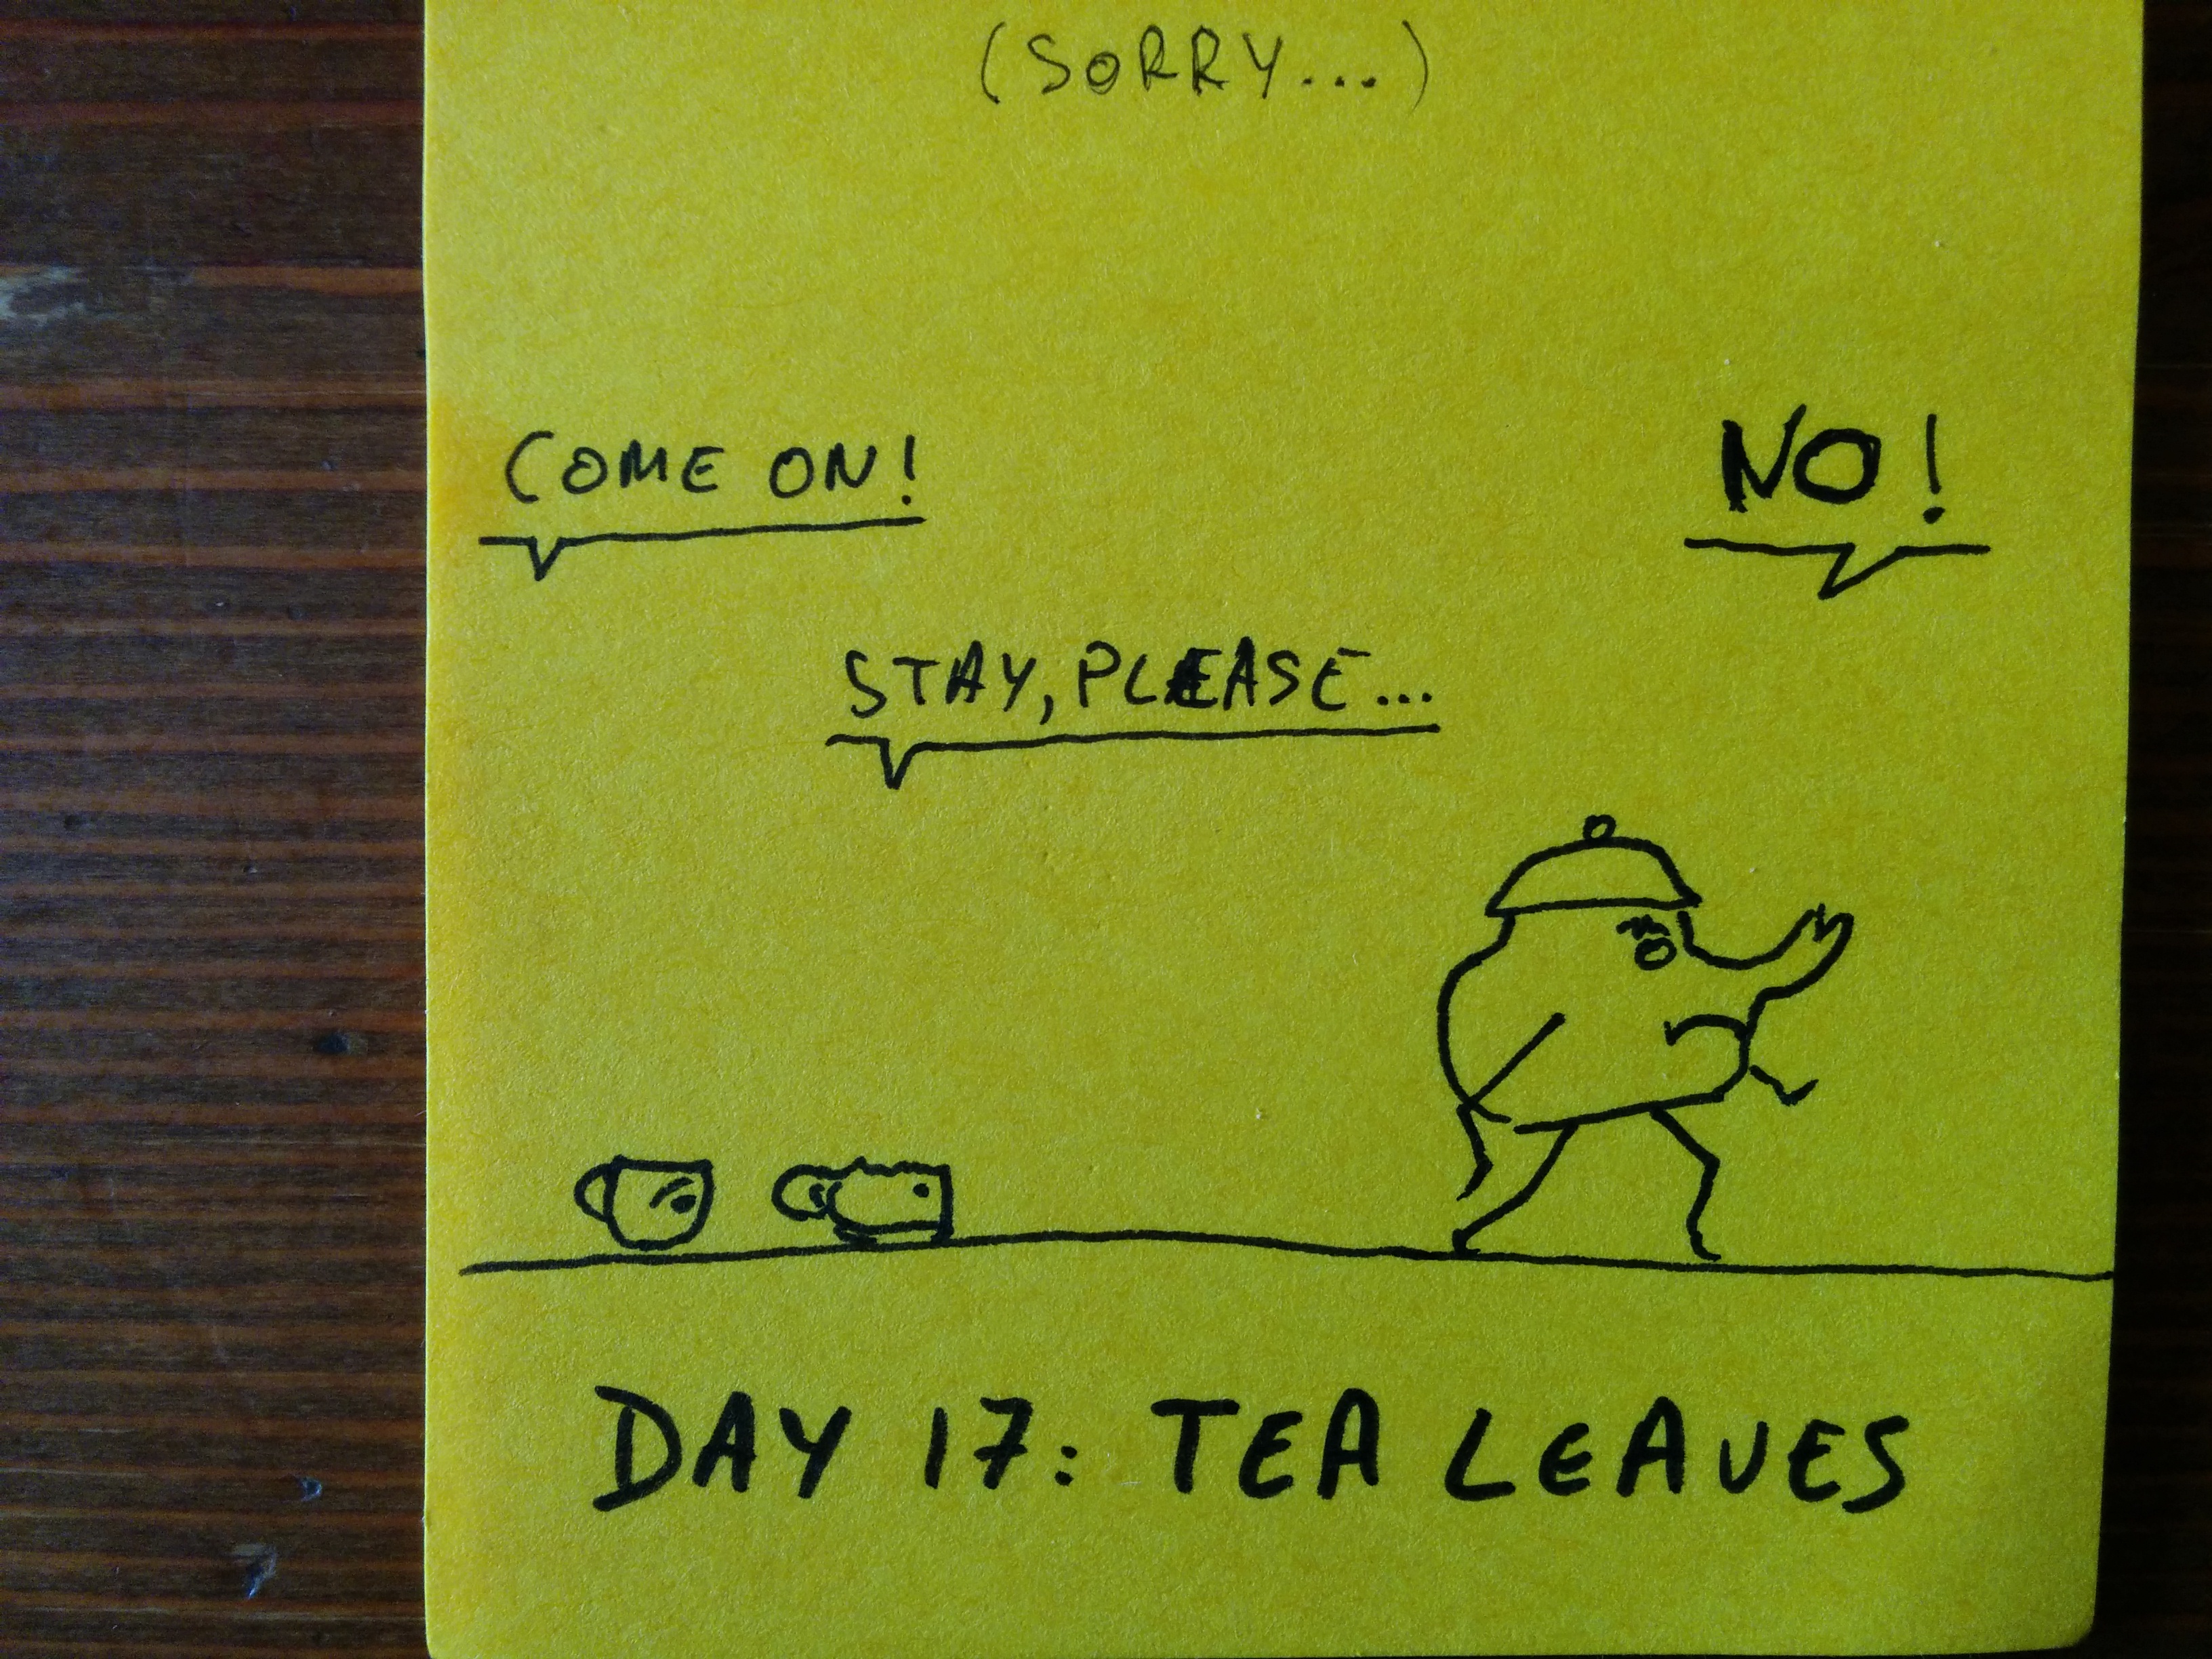 (SORRY...)
COME ON!
NO!
STAY, PLEASE...
DAY 17: TEA LEAVES